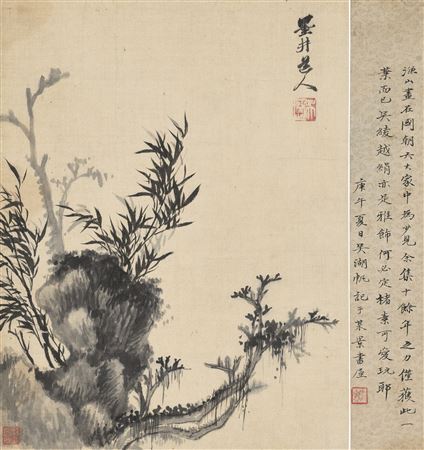 漁山畫在國朝六大家中為少見余集十餘年之力僅獲此一
葉而已吳綾越絹亦是雅飾何必定楮素可愛玩耶
庚午夏日吳湖帆記于某景書屋
墨井道人